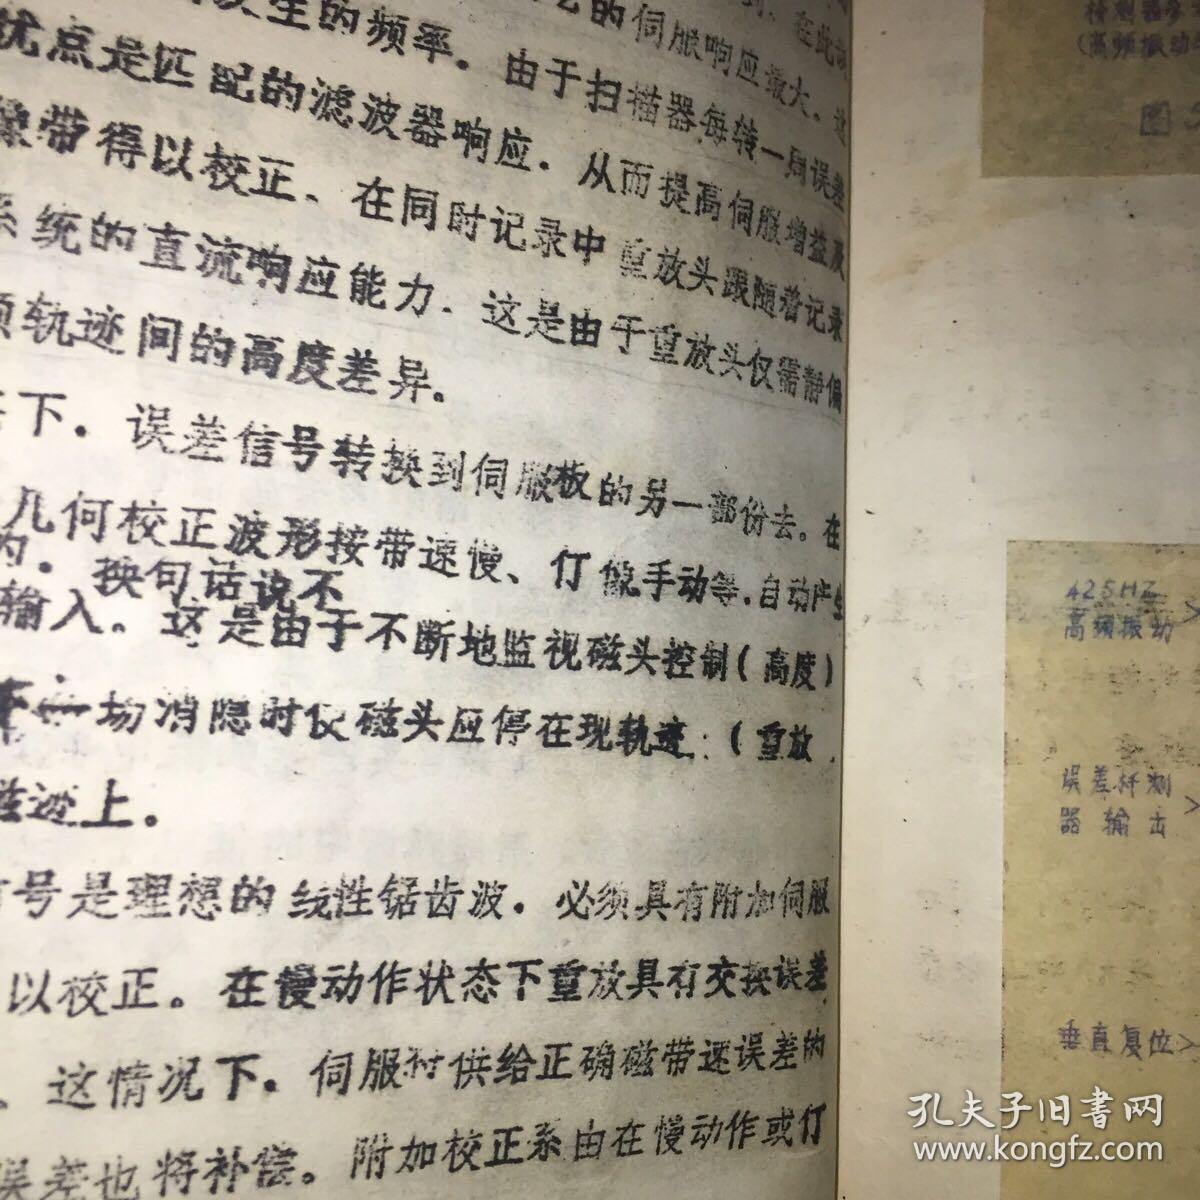 发生的频率。由于扫描器每转一周误差
的伺服响应最大。这
优点是匹配的滤波器响应．从而提高伺服增益及
像带得以校正、在同时记录中重放头跟随着记录
系统的直流响应能力．这是由于重放头仅需静偏
频轨迹间的高度差异．
下．误差信号转换到伺服板的另一部份去。在
几何校正波形按带速慢、仃像手动等．自动产生
的．换句话说不
输入。这是由于不断地监视磁头控制(高度)
一场消隐时使磁头应停在现轨迹：(重放
迹上。
号是理想的线性锯齿波．必须具有附加伺服
以校正。在慢动作状态下重放具有交换误差
、这情况下。伺服 供给正确磁带速误差的
误差也将补偿。附加校正系由在慢动作或仃
(高频振动
图
425HZ
高频振动
误差杆测
器输出
垂直复位
孔夫子旧書网
www.kongfz.com